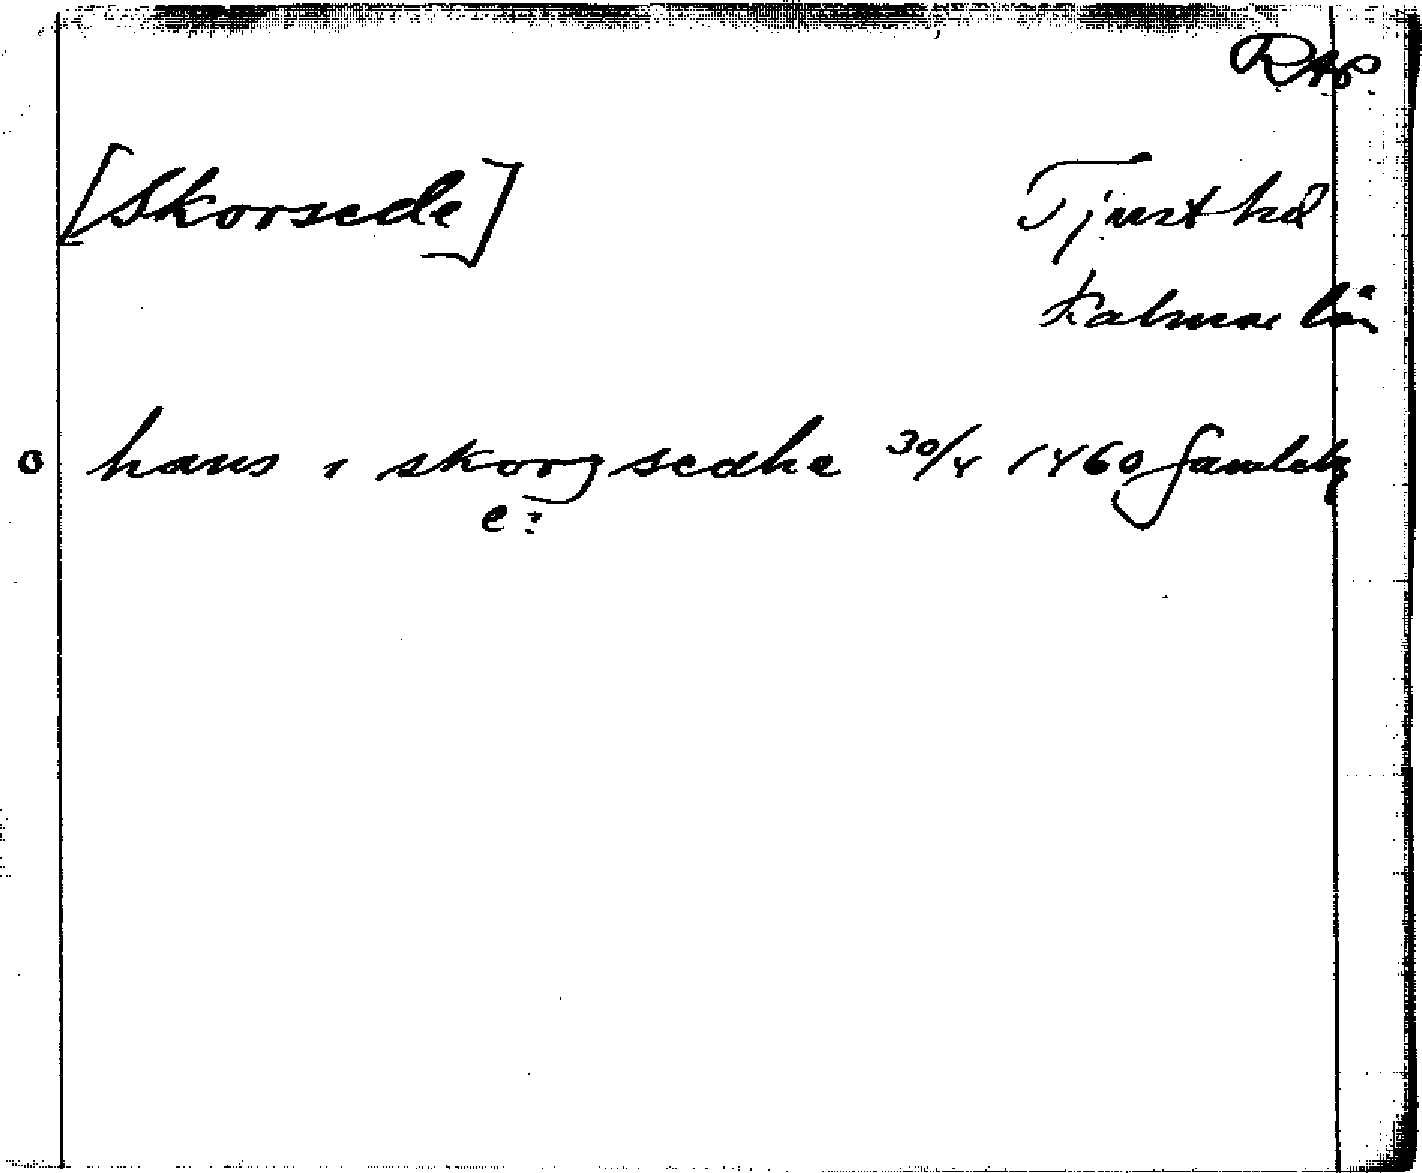 RAP
[Skorsede] Tjust hd
Kalmar län
o hans i skorgsedhe 30/4 1460 Gamleby
e?